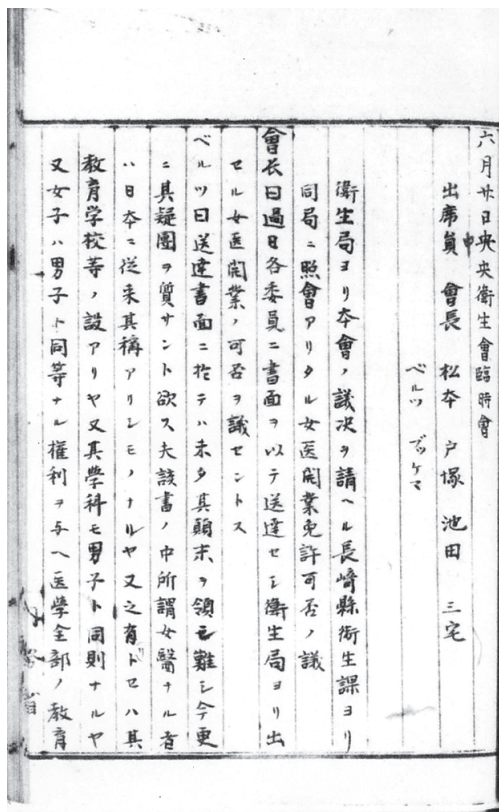 六月廿日央央衛生會臨時會
中
出席員 會長 松本 戸塚 池田 三宅
ベルツ ブッケマ
衛生局ヨリ本會ノ議决ヲ請ヘル長崎縣衛生課ヨリ
同局ニ照會アリタル女医開業免許可否ノ議
會长曰過日各委員ニ書面ヲ以テ送達セシ衛生局ヨリ出
セル女医開業ノ可否ヲ議セントス
ベルツ曰送達書面ニ於テハ未タ其顛末ヲ領シ難シ今更
ニ其疑團ヲ質サント欲ス夫該書ノ中所謂女醫ナル者
ハ日本ニ従来其稱アリシモノナルヤ又之有トセハ其
教育学校等ノ設アリヤ又其学科モ男子ト同則ナルヤ
又女子ハ男子ト同等ナル権利ヲ与ヘ医學全部ノ教育